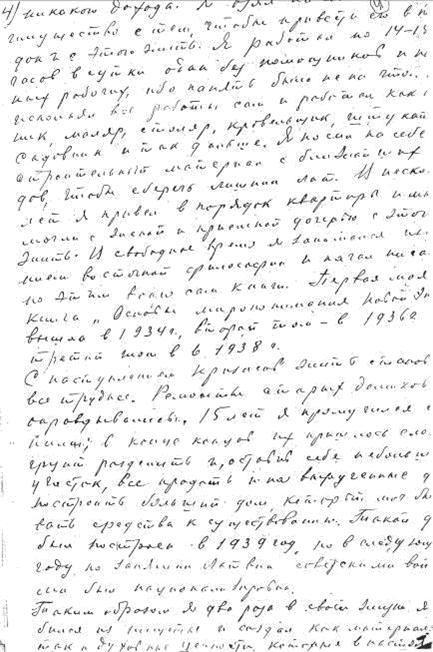 4) никакого дохода. Я взял на
имущество с тем, чтобы привести его в п
док и с этого жить. Я работал по 14-15
часов в сутки один без помощников и н
ных рабочих, ибо нанять было не на что.
исполнял все работы сам и работал как
ник, маляр, столяр, кровельщик, штукат
садовник и так дальше. Я носил на себе
строительный материал с ближайших
дов, чтобы сберечь лишний лат. И неско
лет я привел в порядок квартиры и мы
могли с женой и приемной дочерью с этого
жить. В свободное время я занимался из
нием восточной философии и начал писа
по этим всего сам книги. Первая моя
книга „Основы миропонимания Новой Эп
вышла в 1934 г., второй том – в 1936
третий том в 1938 г.
С наступлением кризисов жить станов
все труднее. Ремонты старых домов
оправдывались. 15 лет я промучился с
ними; в конце концов их пришлось сло
грунт разделить и, оставив себе небольшой
участок, все продать и на вырученные д
построить большой дом, который мог бы
вать средства к существованию. Такой д
был построен в 1939 году, но в следующ
году по занятии Латвии советскими вой
ми был национализирован.
Таким образом я два раза в своей жизни
бился из нищеты и создал как материал
так и духовные ценности, которые в наст